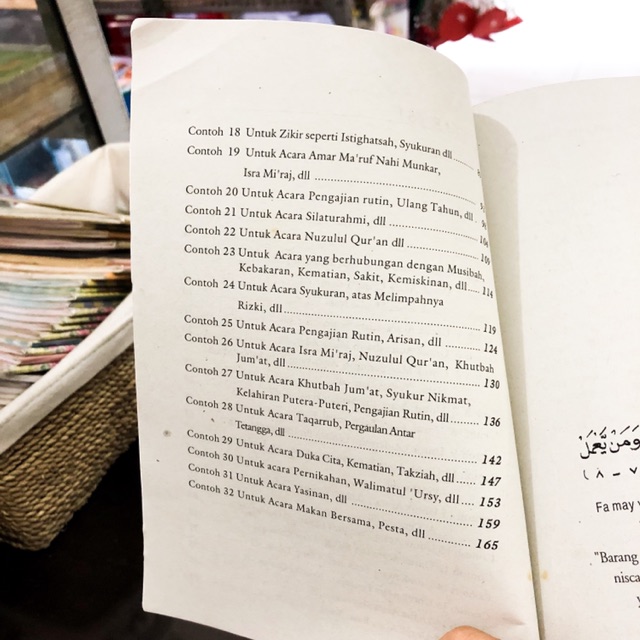 Contoh 18 Untuk Zikir seperti Istighatsah, Syukuran dll
Contoh 19 Untuk Acara Amar Ma'ruf Nahi Munkar,
Isra Mi'raj, dll
Contoh 20 Untuk Acara Pengajian rutin, Ulang Tahun, dll
Contoh 21 Untuk Acara Silaturahmi, dll
Contoh 22 Untuk Acara Nuzulul Qur'an dll
Contoh 23 Untuk Acara yang berhubungan dengan Musibah,
Kebakaran, Kematian, Sakit, Kemiskinan, dll..... 114
Contoh 24 Untuk Acara Syukuran, atas Melimpahnya
Rizki, dll ..... 119
Contoh 25 Untuk Acara Pengajian Rutin, Arisan, dll ..... 124
Contoh 26 Untuk Acara Isra Mi'raj, Nuzulul Qur'an, Khutbah
Jum'at, dll ..... 130
Contoh 27 Untuk Acara Khutbah Jum'at, Syukur Nikmat,
Kelahiran Putera-Puteri, Pengajian Rutin, dll ..... 136
Contoh 28 Untuk Acara Taqarrub, Pergaulan Antar
Tetangga, dll ..... 142
Contoh 29 Untuk Acara Duka Cita, Kematian, Takziah, dll ..... 147
Contoh 30 Untuk acara Pernikahan, Walimatul 'Ursy, dll .... 153
Contoh 31 Untuk Acara Yasinan, dll ..... 159
Contoh 32 Untuk Acara Makan Bersama, Pesta, dll ..... 165
وَمَنْ يَعْمَلْ
٧ - ٨ )
Fa may
"Barang
nisca